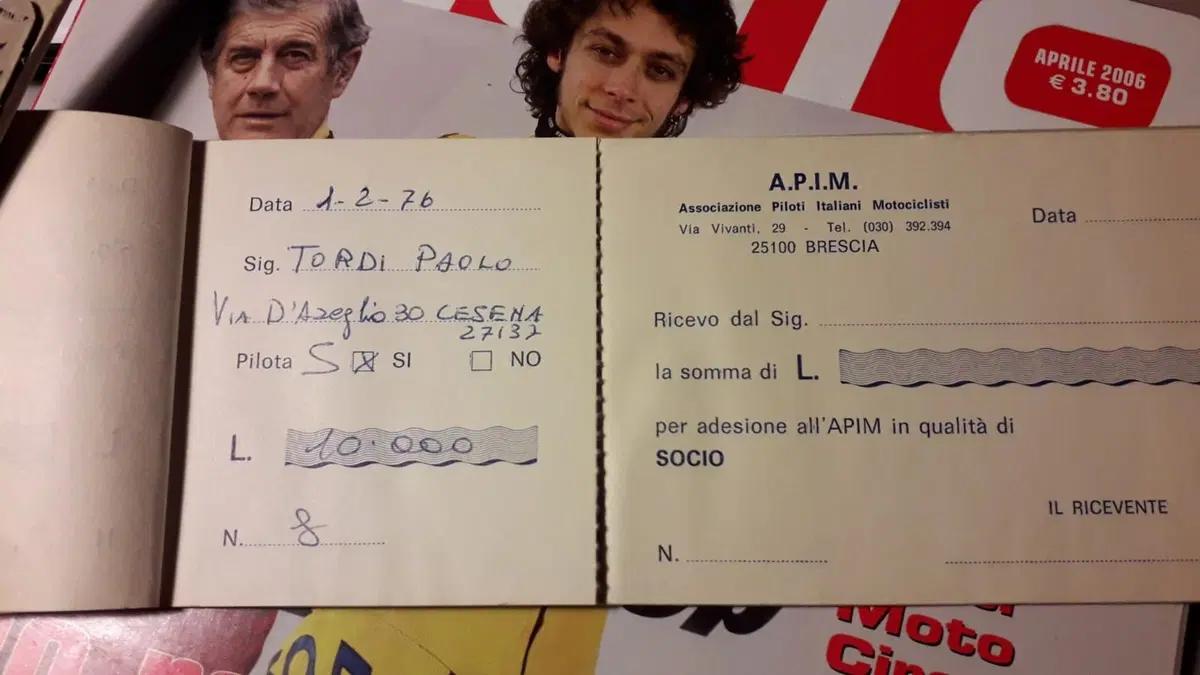 APRILE 2006
€ 3.80
Data 1-2-76
Sig. TORDI PAOLO
VIA D'Azeglio 30 CESENA
27137
Pilota S SI NO
L. 10.000
N. 8
A.P.I.M.
Associazione Piloti Italiani Motociclisti
Via Vivanti, 29 - Tel. (030) 392.394
25100 BRESCIA
Data
Ricevo dal Sig.
la somma di L.
per adesione all'APIM in qualità di
SOCIO
IL RICEVENTE
N.
Moto